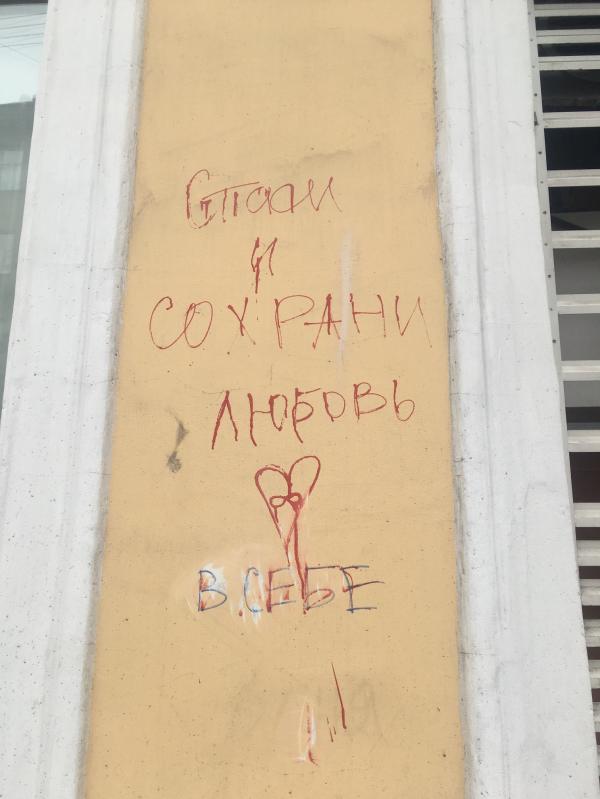 Спаси
и
СОХРАНИ
ЛЮБОВЬ
В СЕБЕ